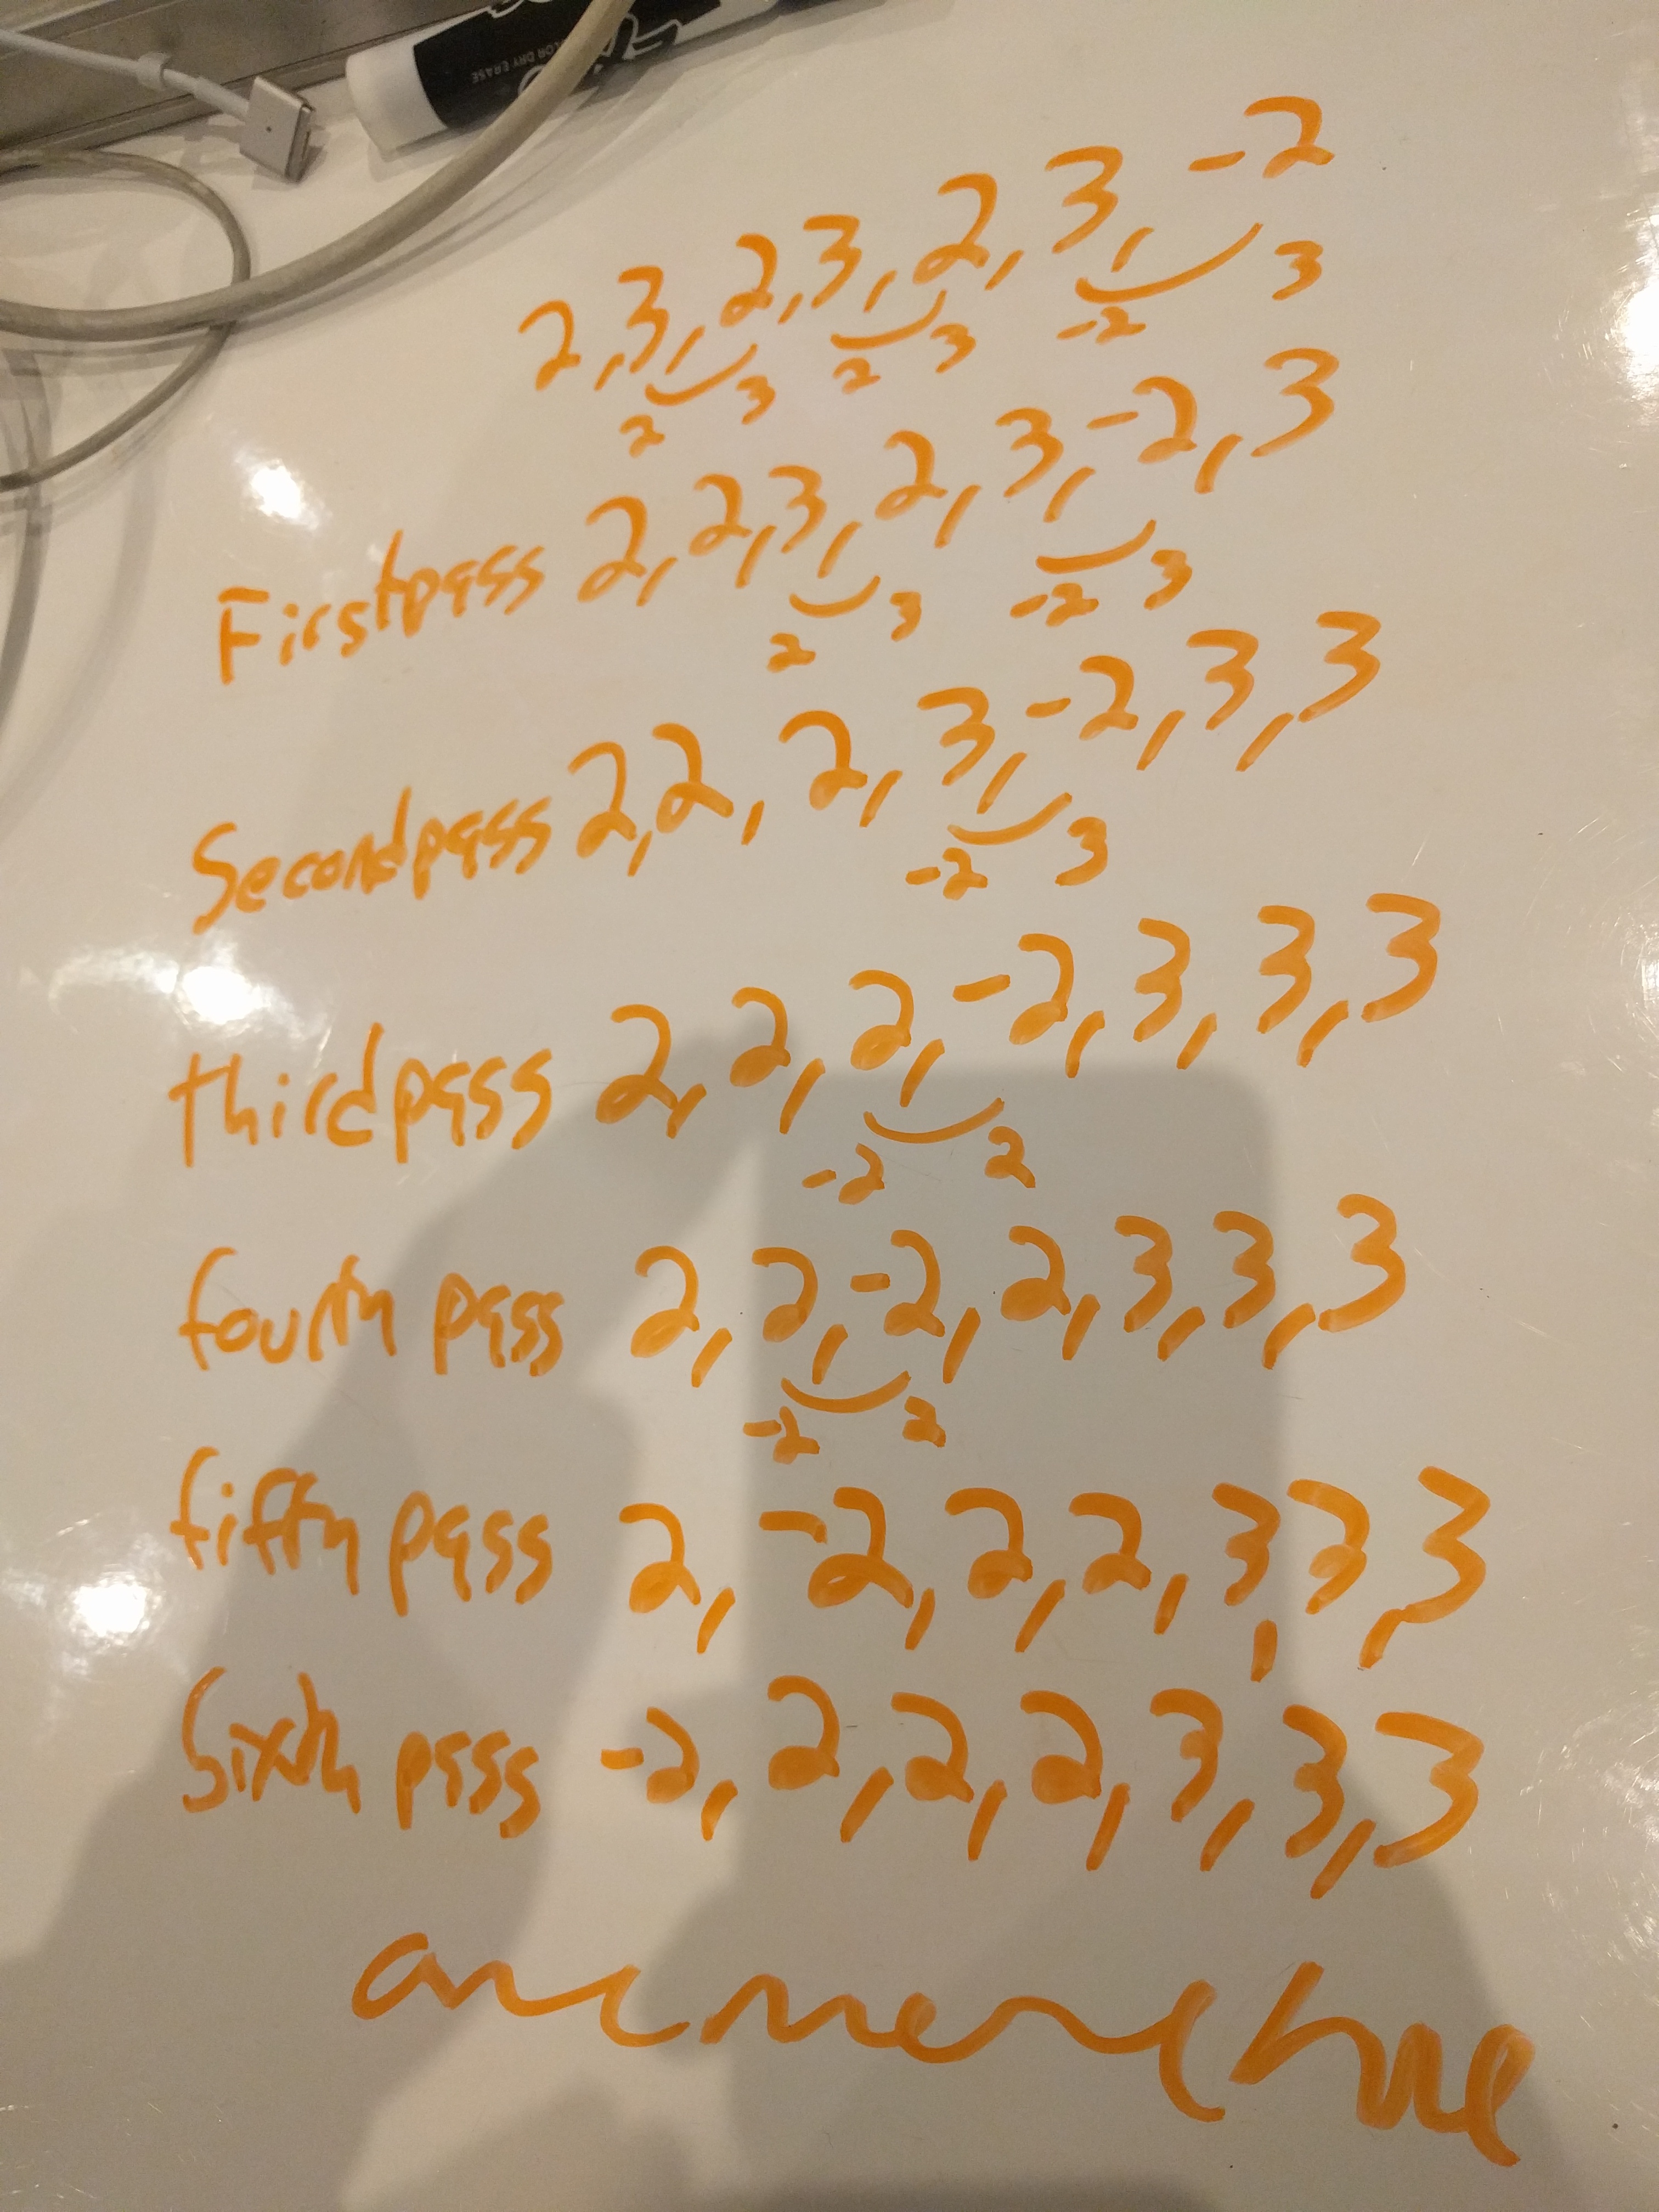 COLOR DRY ERASE
2, 3, 2, 3, 2, 3, -2
2 3 2 3 -2 3
First pass 2, 2, 3, 2, 3, -2, 3
2 3 -2 3
Second pass 2, 2, 2, 3, -2, 3, 3
-2 3
third pass 2, 2, 2, -2, 3, 3, 3
-2 2
fourth pass 2, 2, -2, 2, 3, 3, 3
-2 2
fifth pass 2, -2, 2, 2, 3, 3, 3
Sixth pass -2, 2, 2, 2, 3, 3, 3